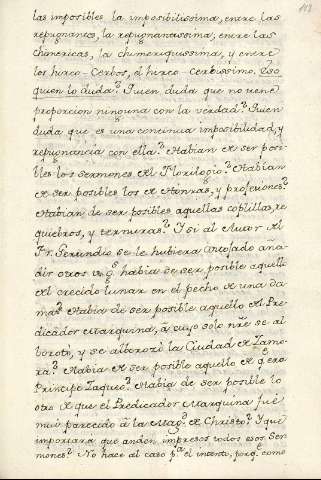 113
las imposibles, la imposibilissima, entre las
repugnantes, la repugnantissima, entre las
chimericas, la chimeriquissima, y entre
los hirco-Cerbos, el hirco-cerbissimo. Eso
quien lo duda? Quien duda que no tiene
proporcion ninguna con la verdad? Quien
duda que es una continua imposibilidad, y
repugnancia con ella? Habian de ser posi-
bles los sermones del Florilogio? Habian
de ser posibles los de Honras, y profesiones?
Habian de ser posibles aquellas coplillas, re
quiebros, y ternuras? Y si al Autor del
Fr. Gerundio se le hubiera antojado aña-
dir otros habia de ser posible aquell
del crecido lunar en el pecho de una da
ma? Habia de ser posible aquello del Pre-
dicador Marquina, à cuyo solo nre se al
borotò, y se alborozò la Ciudad de Zamo-
ra? Habia de ser posible aquello de
Principe Zaqueo? Habia de ser posible lo
otro de que el Predicador Marquina fuè
mui parecido à la Magd. de Christo? Y què
importarà que anden impresos todos esos Ser
mones? No hace al caso pa. el intento, porq. como